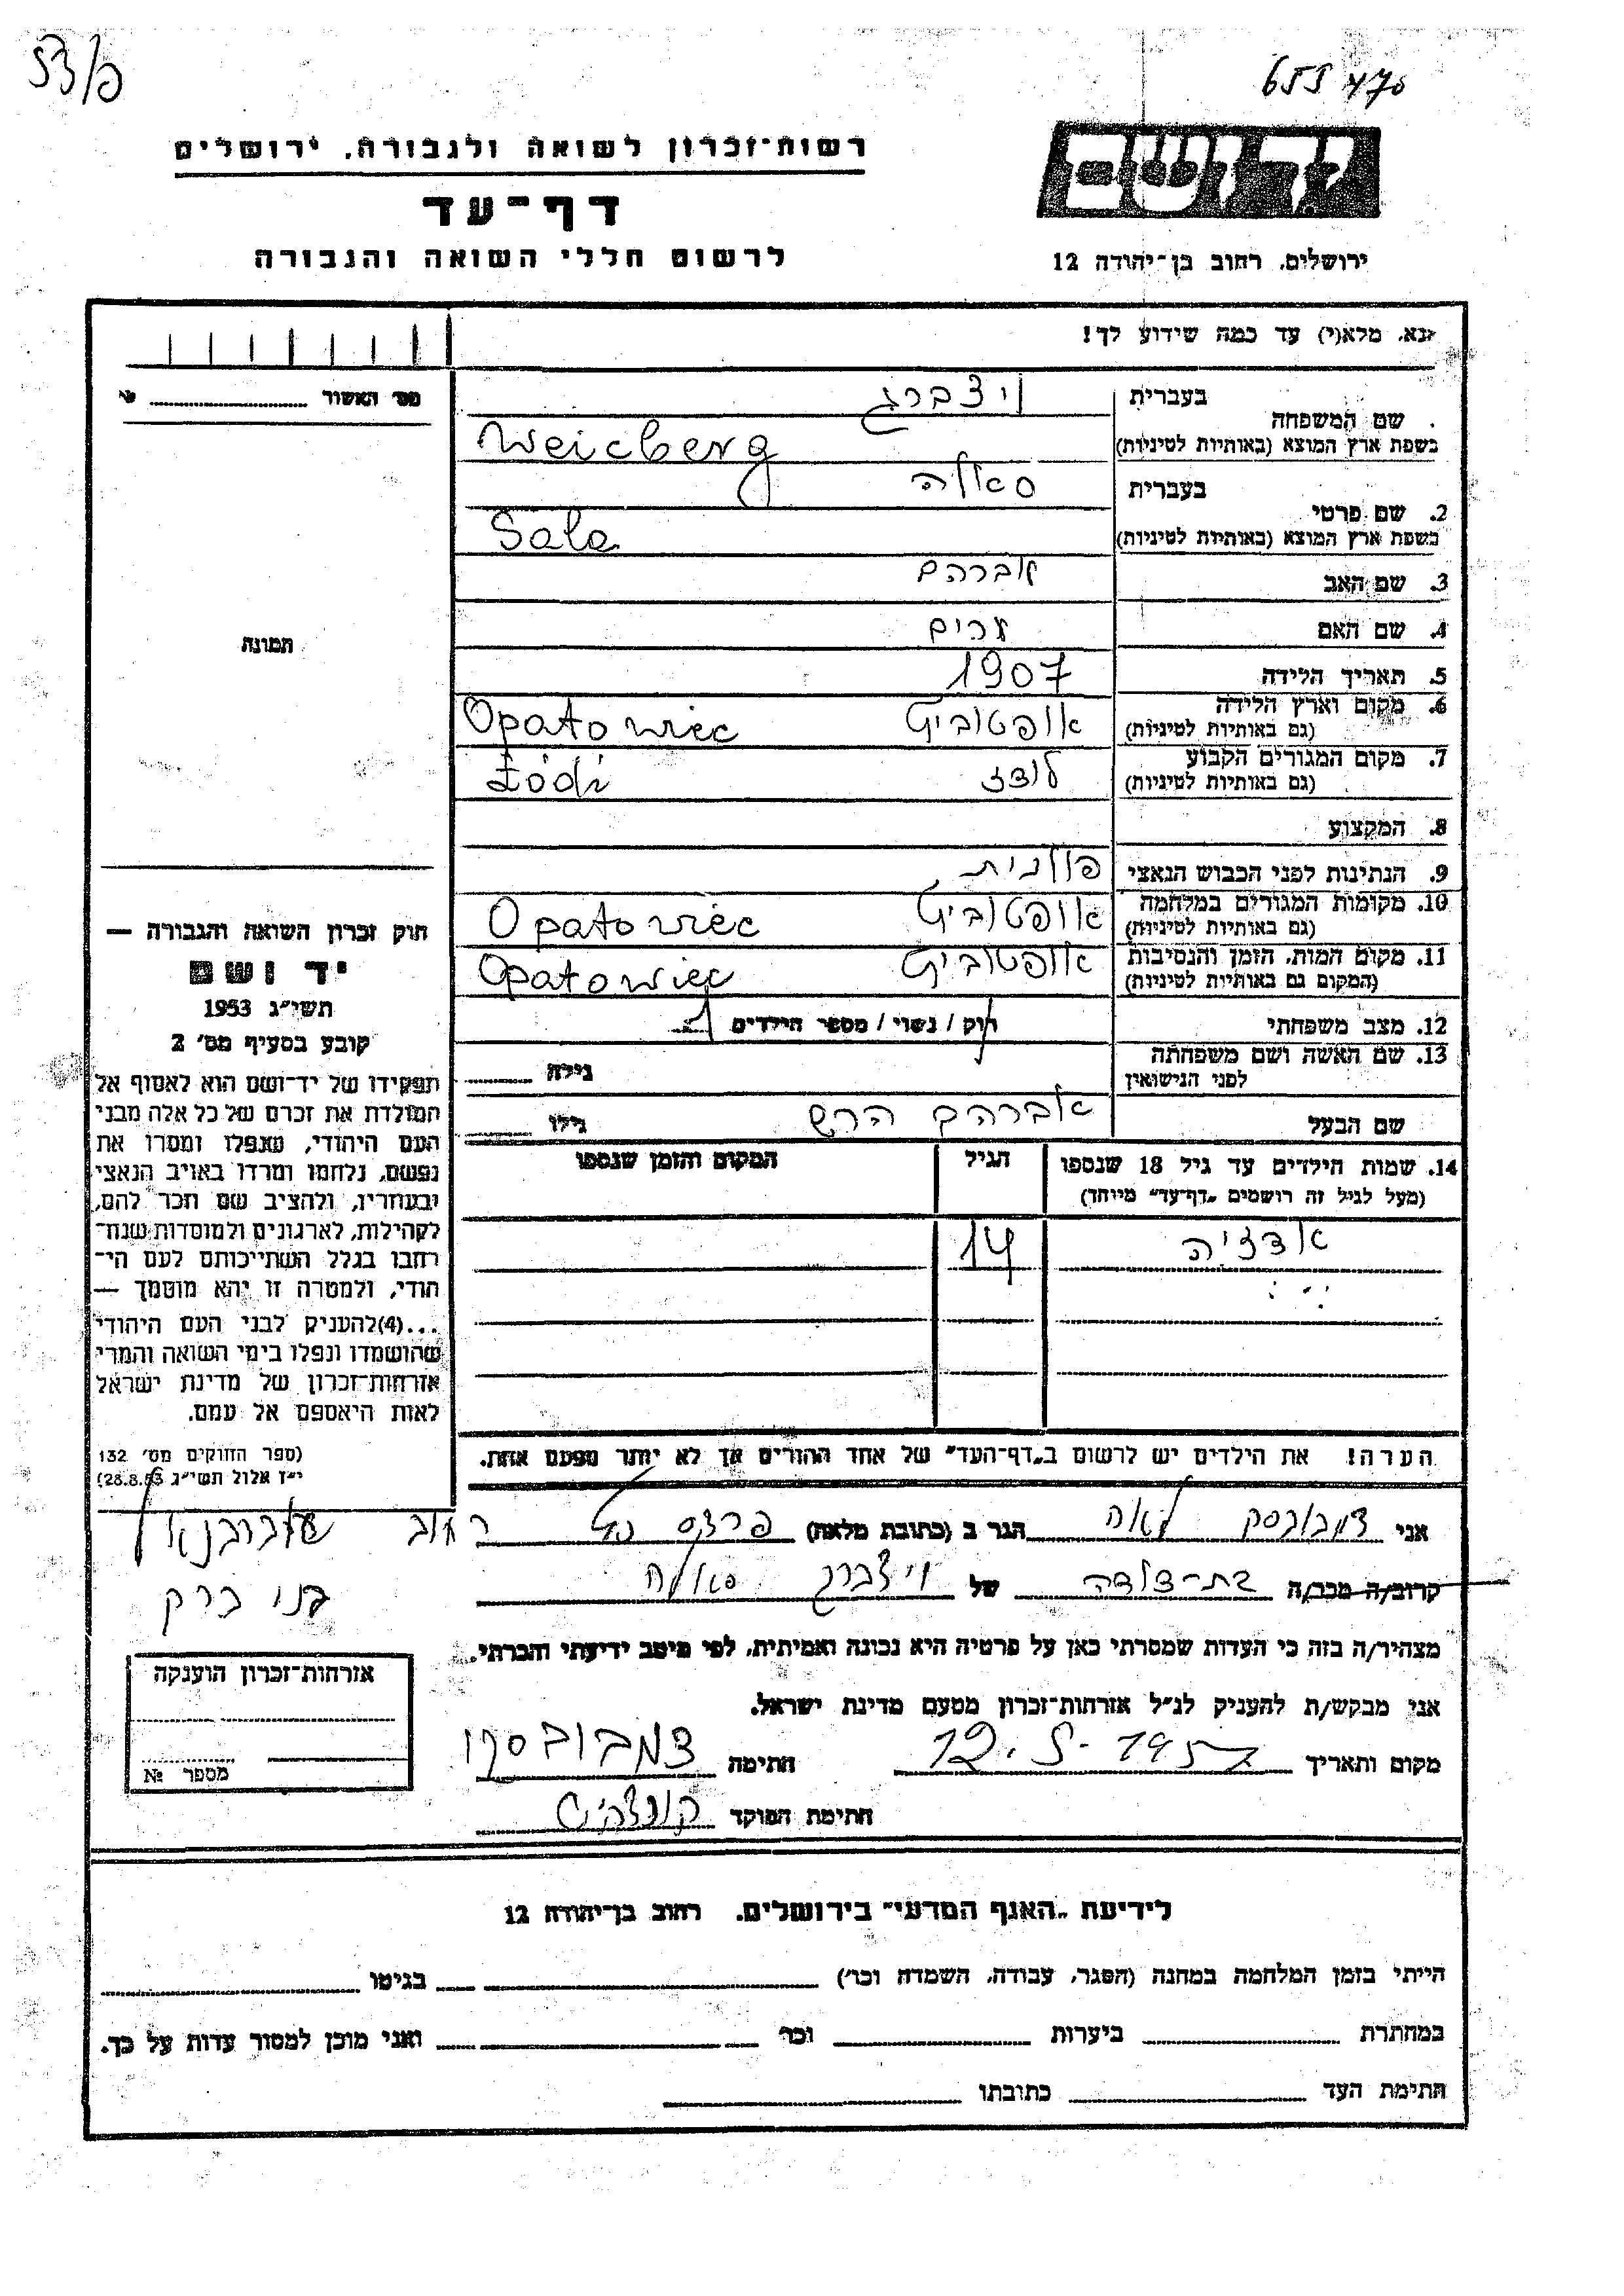 פ/53
655 470
יד ושם
רשות־זכרון לשואה ולגבורה, ירושלים
דף־עד
לרשום חללי השואה והגבורה
ירושלים, רחוב בן־יהודה 12
נא, מלא(י) עד כמה שידוע לך!
מס׳ האשור
בעברית ויצברג
שם המשפחה
בשפת ארץ המוצא (באותיות לטיניות) Weicberg
בעברית סאלה
2. שם פרטי
בשפת ארץ המוצא (באותיות לטיניות) Sala
3. שם האב אברהם
4. שם האם מרים
5. תאריך הלידה 1907
6. מקום וארץ הלידה
(גם באותיות לטיניות) אופטוביץ Opatowiec
7. מקום המגורים הקבוע
(גם באותיות לטיניות) לודז Łódź
8. המקצוע
9. הנתינות לפני הכבוש הנאצי פולנית
10. מקומות המגורים במלחמה
(גם באותיות לטיניות) אופטוביץ Opatowiec
11. מקום המות, הזמן והנסיבות
(המקום גם באותיות לטיניות) אופטוביץ Opatowiec
12. מצב משפחתי רוק / נשוי / מספר הילדים 1
13. שם האשה ושם משפחתה
לפני הנישואין גילה
שם הבעל אברהם הרש גילו
14. שמות הילדים עד גיל 18 שנספו הגיל המקום והזמן שנספו
(מעל לגיל זה רושמים „דף־עד״ מיוחד)
אדזיה 14
הערה! את הילדים יש לרשום ב„דף־העד״ של אחד ההורים אך לא יותר מפעם אחת.
תמונה
חוק זכרון השואה והגבורה —
יד ושם
תשי״ג 1953
קובע בסעיף מס׳ 2
תפקידו של יד־ושם הוא לאסוף אל
המולדת את זכרם של כל אלה מבני
העם היהודי, שנפלו ומסרו את
נפשם, נלחמו ומרדו באויב הנאצי
ובעוזריו, ולהציב שם וזכר להם,
לקהילות, לארגונים ולמוסדות שנח־
רבו בגלל השתייכותם לעם הי־
הודי, ולמטרה זו יהא מוסמך —
...(4)להעניק לבני העם היהודי
שהושמדו ונפלו בימי השואה והמרי
אזרחות־זכרון של מדינת ישראל
לאות היאספם אל עמם.
(ספר החוקים מס׳ 132
י״ז אלול תשי״ג 28.8.53)
אני לאה הגר ב (כתובת מלאה) פרדס רחוב
בני ברק
קרוב/ה מכר/ה בת־דודה של ויצברג סאלה
מצהיר/ה בזה כי העדות שמסרתי כאן על פרטיה היא נכונה ואמיתית, לפי מיטב ידיעתי והכרתי.
אני מבקש/ת להעניק לנ״ל אזרחות־זכרון מטעם מדינת ישראל.
מקום ותאריך 12.5.195 חתימה
חתימת הפוקד
אזרחות־זכרון הוענקה
מספר №
לידיעת „האגף המדעי״ בירושלים, רחוב בן־יהודה 12
הייתי בזמן המלחמה במחנה (הסגר, עבודה, השמדה וכו׳) בגיטו
במחתרת ביערות וכו׳ ואני מוכן למסור עדות על כך.
חתימת העד כתובתו